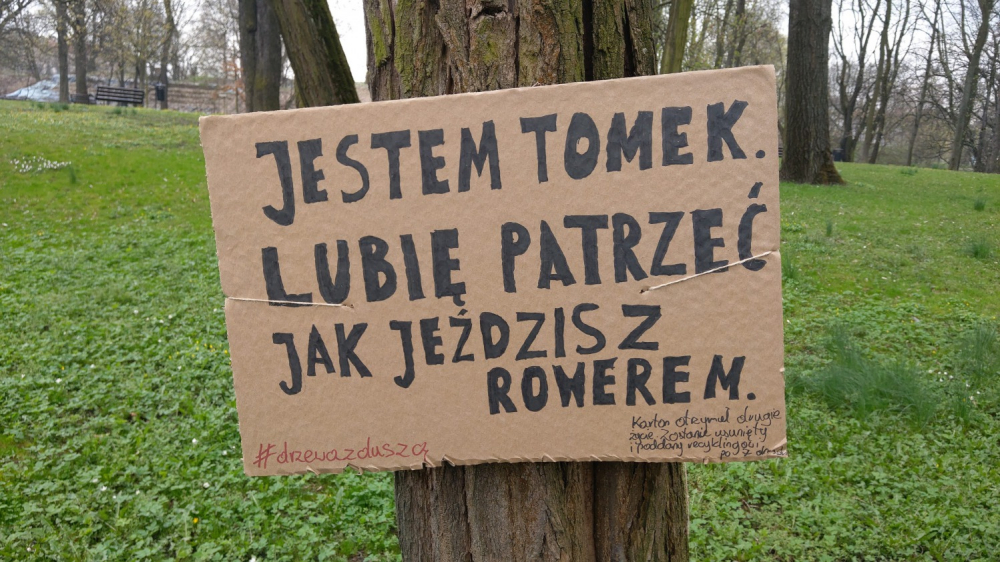 JESTEM TOMEK.
LUBIĘ PATRZEĆ
JAK JEŹDZISZ
ROWEREM.
#drzewazduszą
Karton otrzymał drugie
życie. Zostanie usunięty
i poddany recyklingowi
po